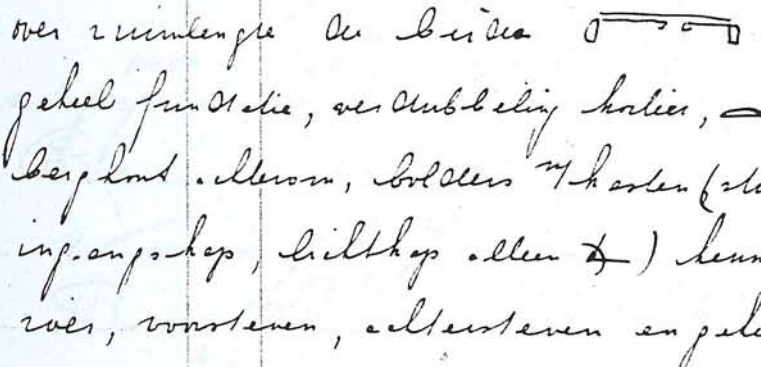 over ruimlengte de beide
geheel fundatie, verdubbeling
berghout achterom, bolders kasten
ingangskap, lichtkap alleen
roer, voorsteven, achtersteven en